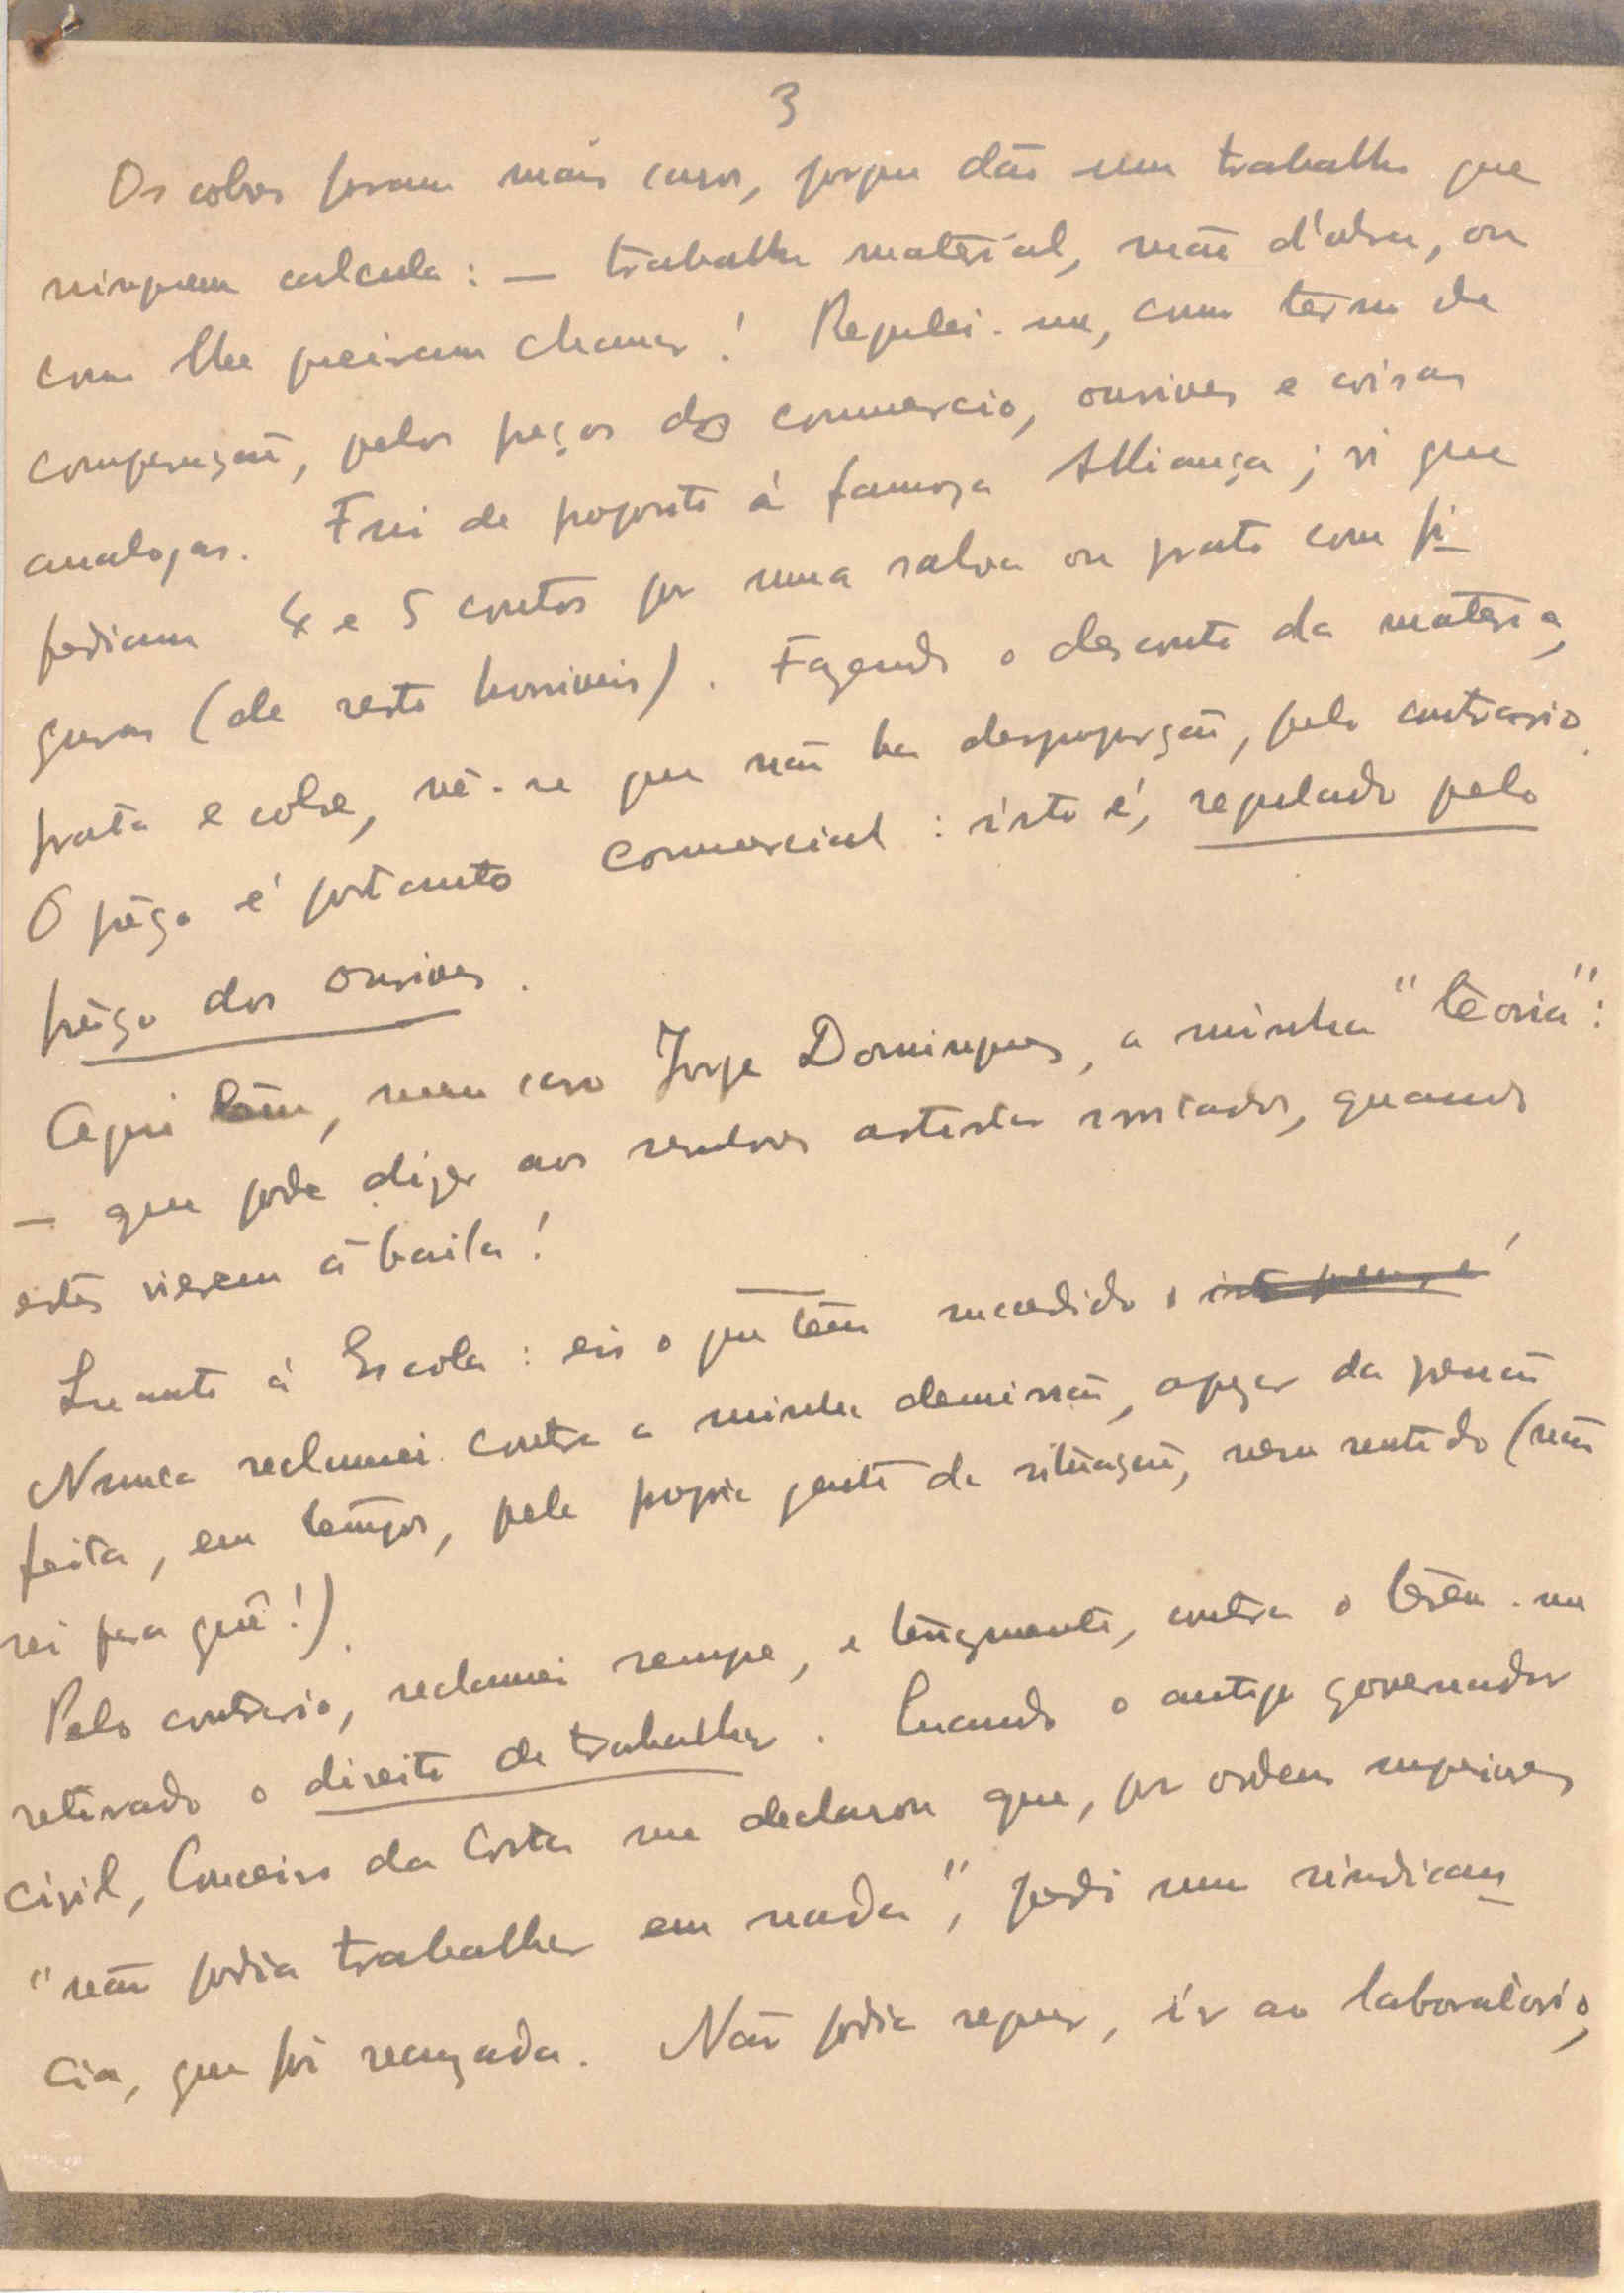 3
Os cobres foram mais caros, porque dão um trabalho que
ninguem calcula: — trabalho material, mão d'obra, ou
como lhe queiram chamar! Regulei-me, como termo de
comparação, pelos preços do commercio, ourives e coisas
analogas. Fui de proposito á famosa Alliança; vi que
pediam 4 e 5 contos por uma salva ou prato com fi-
guras (de resto horriveis). Fazendo o desconto da materia,
prata e cobre, vê-se que não ha desproporção, pelo contrario.
O preço é portanto commercial: isto é, regulado pelo
preço dos ourives.
Aqui têm, meu caro Jorge Domingues, a minha "teoria":
— que pode dizer aos senhores artistas irritados, quando
estes vierem á baila!
Quanto á Escola: eis o que têm sucedido:
Nunca reclamei contra a minha demissão, apezar da pressão
feita, em tempos, pela propria gente da situação, nesse sentido (não
sei para quê!).
Pelo contrario, reclamei sempre, e tenazmente, contra o terem-me
retirado o direito de trabalhar. Quando o antigo governador
civil, Couceiro da Costa me declarou que, por ordens superiores
"não podia trabalhar em nada", pedi uma sindican-
cia, que foi recuzada. Não podia sequer, ir ao laboratório,